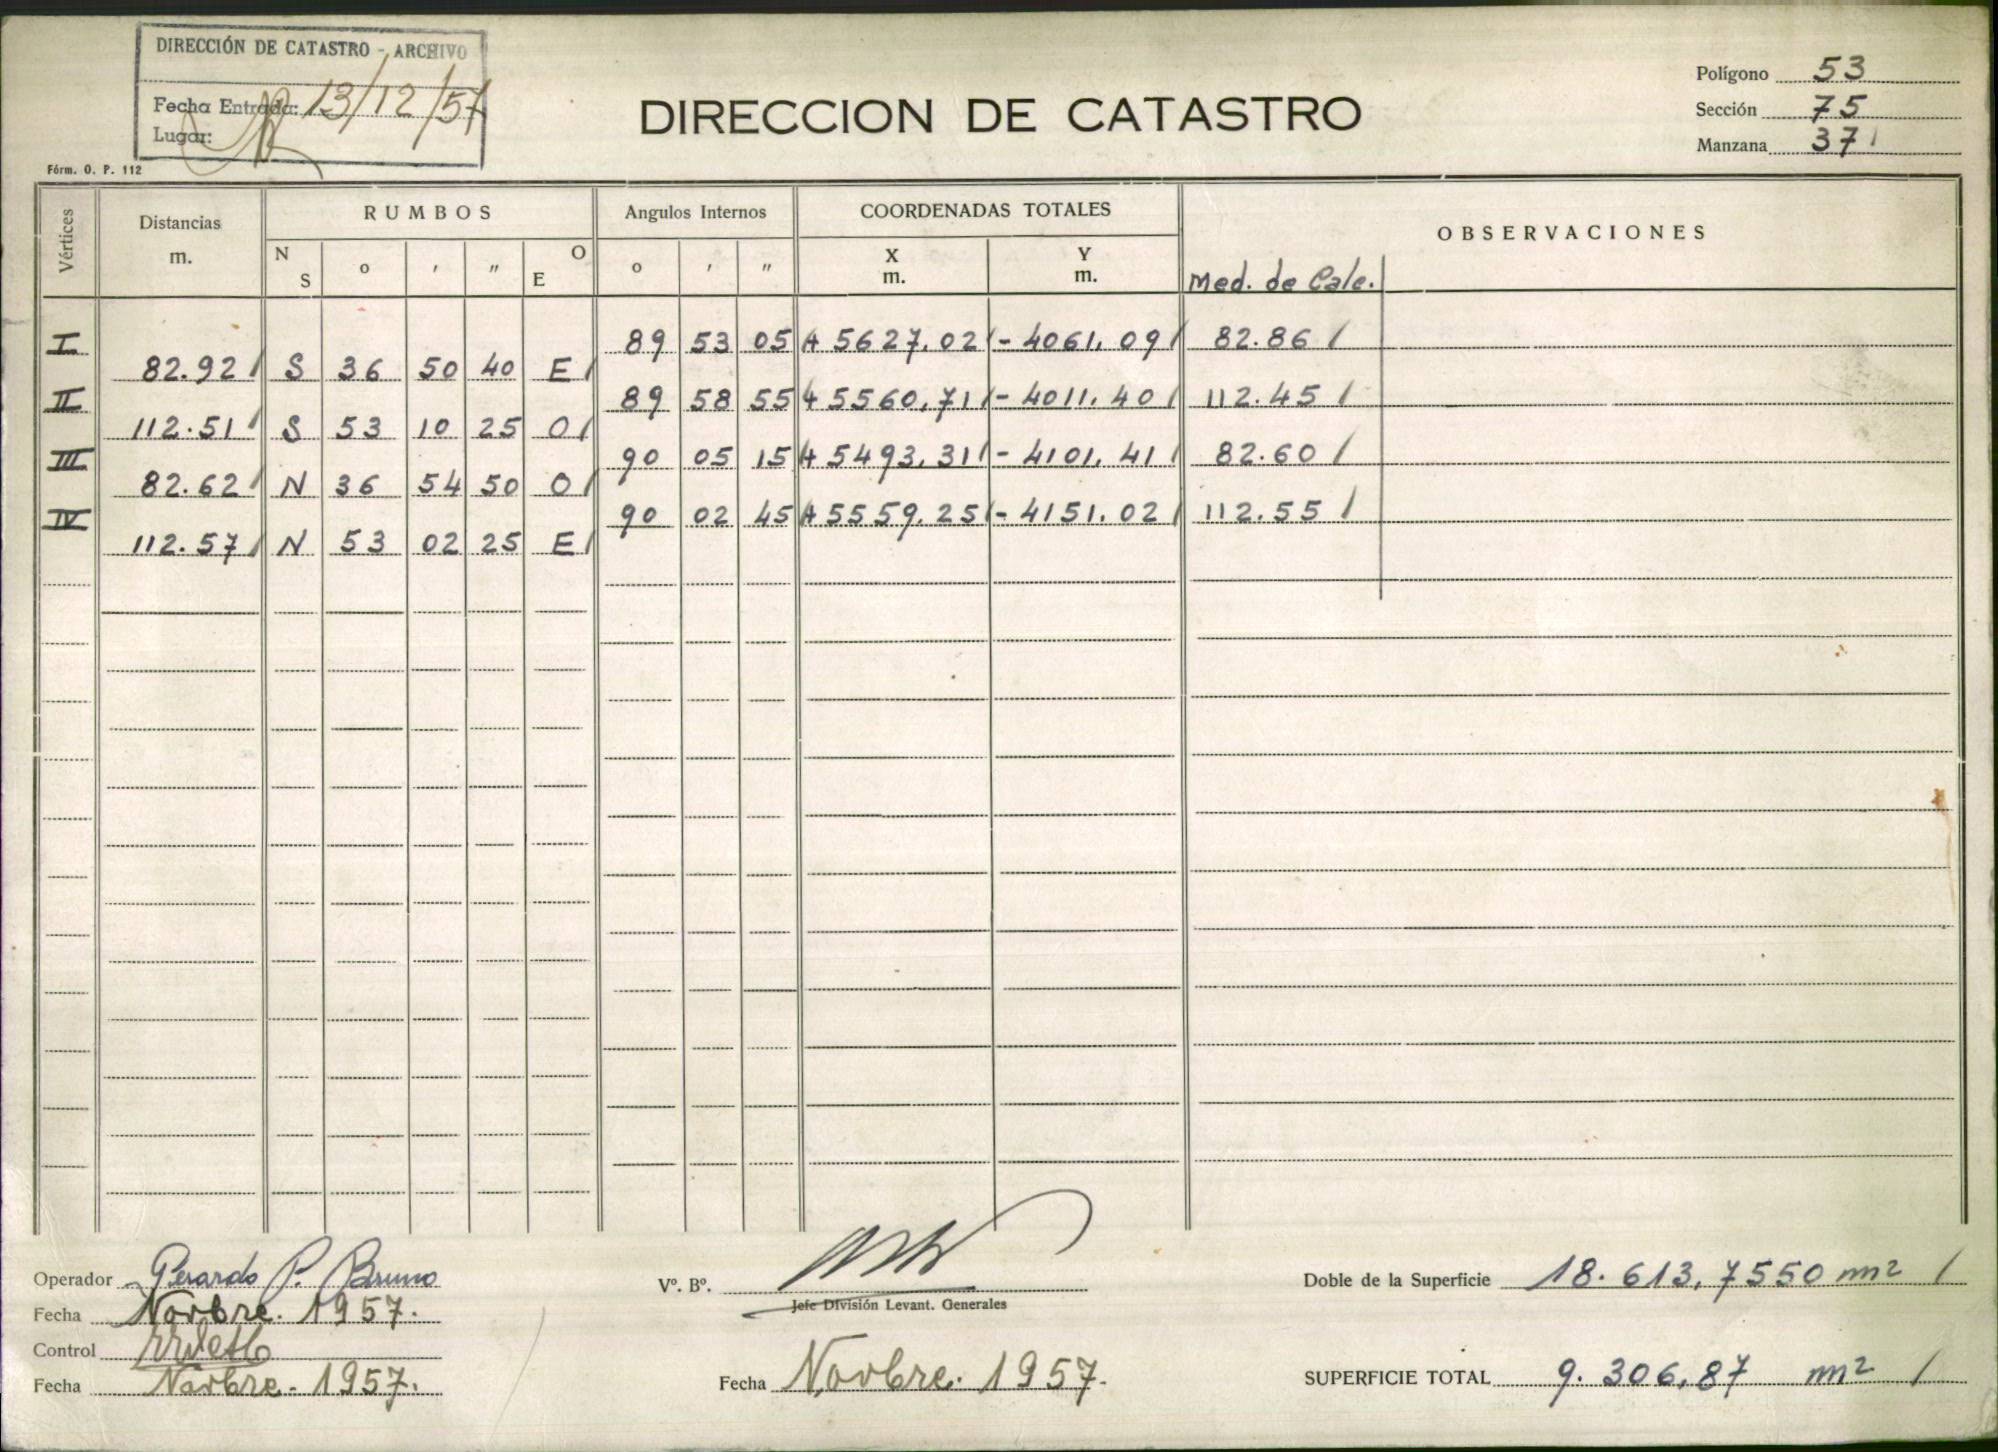 DIRECCIÓN DE CATASTRO - ARCHIVO
Fecha Entrada: 13/12/57
Lugar:
Fórm. O. P. 112
DIRECCION DE CATASTRO
Polígono 53
Sección 75
Manzana 37
Vértices Distancias m. RUMBOS Angulos Internos COORDENADAS TOTALES OBSERVACIONES
N S o ' " O E o ' " X m. Y m. Med. de Calc.
I 89 53 05 + 5627.02 - 4061.09 82.86
82.92 S 36 50 40 E
II 89 58 55 + 5560.71 - 4011.40 112.45
112.51 S 53 10 25 O
III 90 05 15 + 5493.31 - 4101.41 82.60
82.62 N 36 54 50 O
IV 90 02 45 + 5559.25 - 4151.02 112.55
112.57 N 53 02 25 E
Operador Gerardo P. Bruno
Fecha Novbre. 1957.
Control
Fecha Novbre. 1957.
Vº. Bº.
Jefe División Levant. Generales
Fecha Novbre. 1957.
Doble de la Superficie 18.613,7550 m2
SUPERFICIE TOTAL 9.306,87 m2